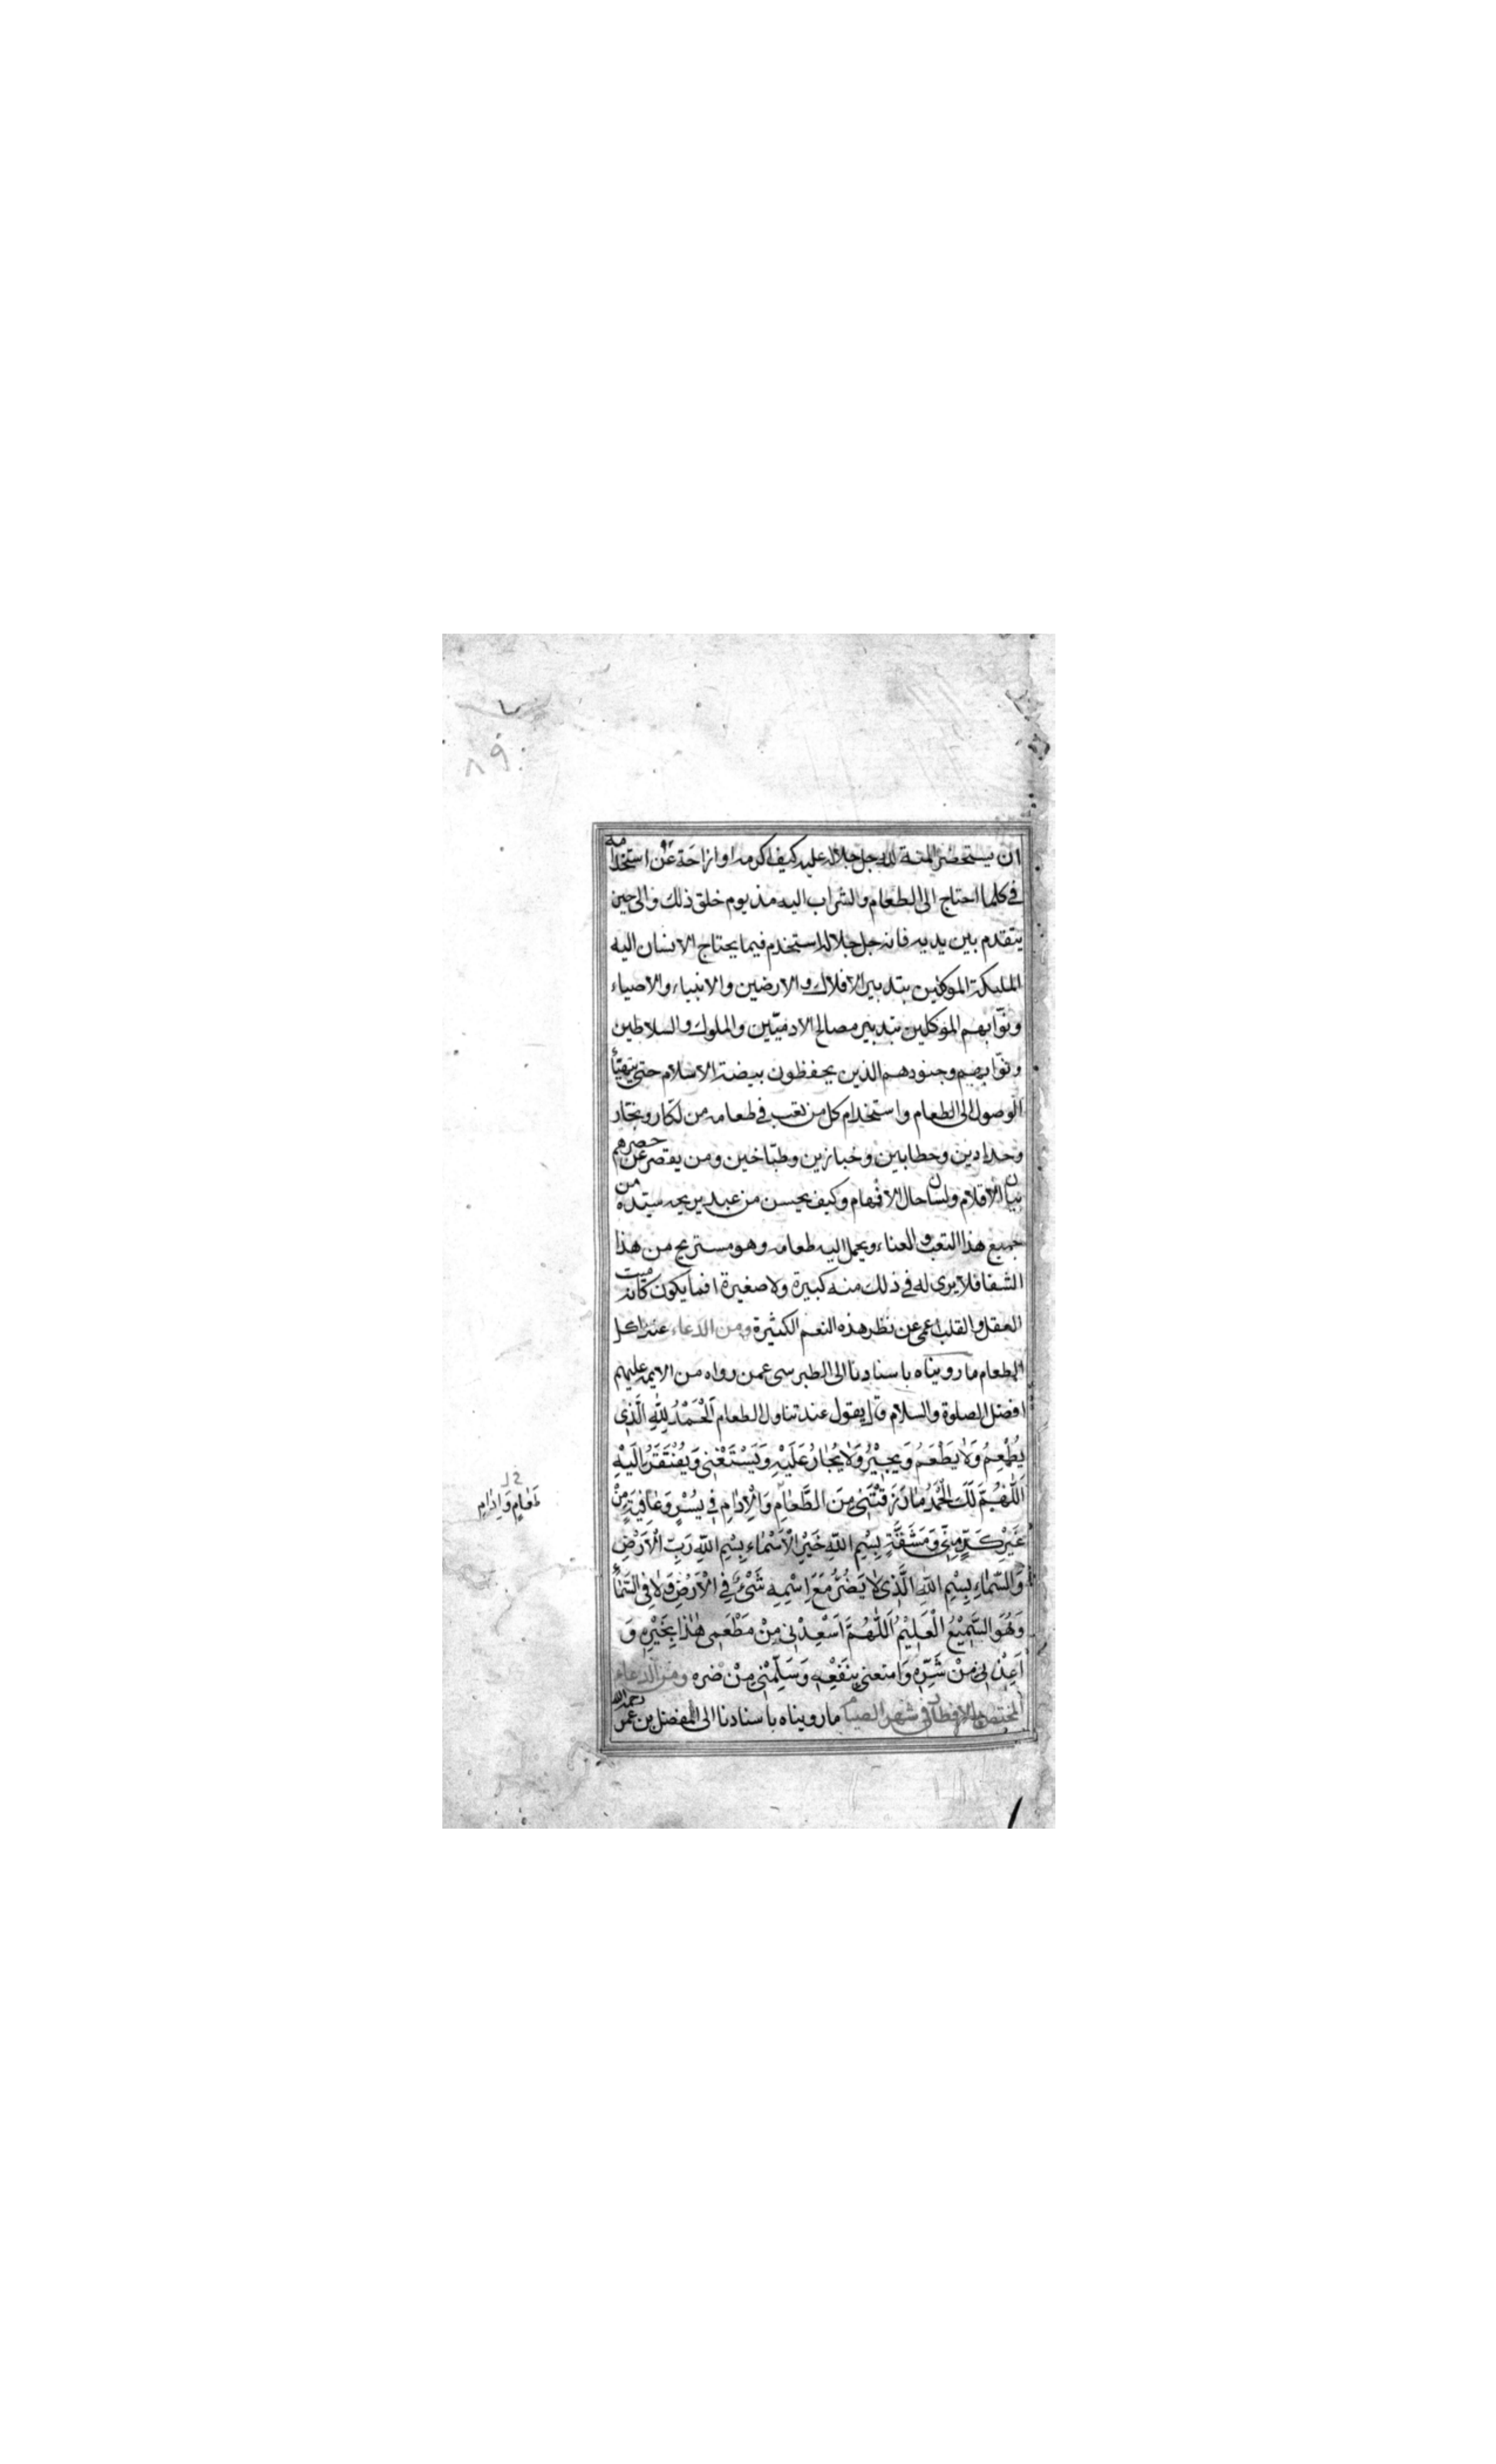 ٨٩
ان يستحضر المنة لله جل جلاله عليه كيف اكرمه وازاحه عن استخدامه
في كلما احتاج الى الطعام والشراب اليه مذ يوم خلق ذلك والى حين
يتقدم بين يديه فانه جل جلاله استخدم فيما يحتاج الانسان اليه
المليكة الموكلين بتدبير الافلاك والارضين والانبياء والاصياء
ونوّابهم الموكلين بتدبير مصالح الادميّين والملوك والسلاطين
ونوّابهم وجنودهم الذين يحفظون بيضة الاسلام حتى يتهيّأ
الوصول الى الطعام واستخدام كل من تعب في طعامه من اكار ونجّار
وحدادين وحطابين وخبازين وطبّاخين ومن يقصر عن حصرهم
بيان الاقلام ولسان حال الافهام وكيف يحسن من عبد يريحه سيّده من
جميع هذا التعب والعناء ويحمل اليه طعامه وهو مستريح من هذا
الشقا فلا يرى له في ذلك منه كبيرة ولا صغيرة افما يكون كانه ميت
العقل والقلب اعمى عن نظر هذه النعم الكثيرة ومن الدعاء عند اكل
الطعام ما رويناه باسنادنا الى الطبرسى عمن رواه من الايمة عليهم
افضل الصلوة والسلام قال يقول عند تناول الطعام اَلْحَمْدُ لِلّٰهِ الَّذِى
يُطْعِمُ وَلَا يَطْعَمُ وَيُجِيْرُ وَلَا يُجَارُ عَلَيْهِ وَيَسْتَغْنِى وَيُفْتَقَرُ اِلَيْهِ
اَللّٰهُمَّ لَكَ الْحَمْدُ مَا رَزَقْتَنِى مِنَ الطَّعَامِ وَالْاِدَامِ فِي يُسْرٍ وَعَافِيَةٍ مِنْ
غَيْرِ كَدٍّ مِنِّى وَمَشَقَّةٍ بِسْمِ اللّٰهِ خَيْرِ الْاَسْمَاءِ بِسْمِ اللّٰهِ رَبِّ الْاَرْضِ
وَالسَّمَاءِ بِسْمِ اللّٰهِ الَّذِى لَا يَضُرُّ مَعَ اسْمِهِ شَىْءٌ فِي الْاَرْضِ وَلَا فِى السَّمَاءِ
وَهُوَ السَّمِيْعُ الْعَلِيْمُ اَللّٰهُمَّ اَسْعِدْنِى مِنْ مَطْعَمِى هٰذَا بِخَيْرِهِ وَ
اَعِذْنِى مِنْ شَرِّهِ وَامتعنى بِنَفْعِهِ وَسَلِّمْنِى مِنْ ضره ومن الدعاء
المختص بالافطار في شهر الصيام ما رويناه باسنادنا الى المفضل بن عمر رحمه الله
طَعَامٍ وَاِدَامٍ